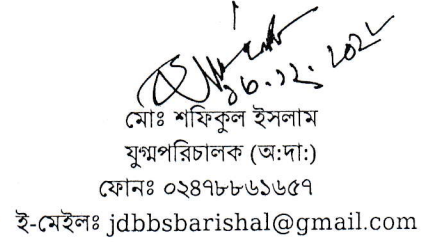 মোঃ শফিকুল ইসলাম
যুগ্মপরিচালক (অ:দা:)
ফোনঃ ০২৪৭৮৮৬১৬৫৭
ই-মেইলঃ jdbbsbarishal@gmail.com